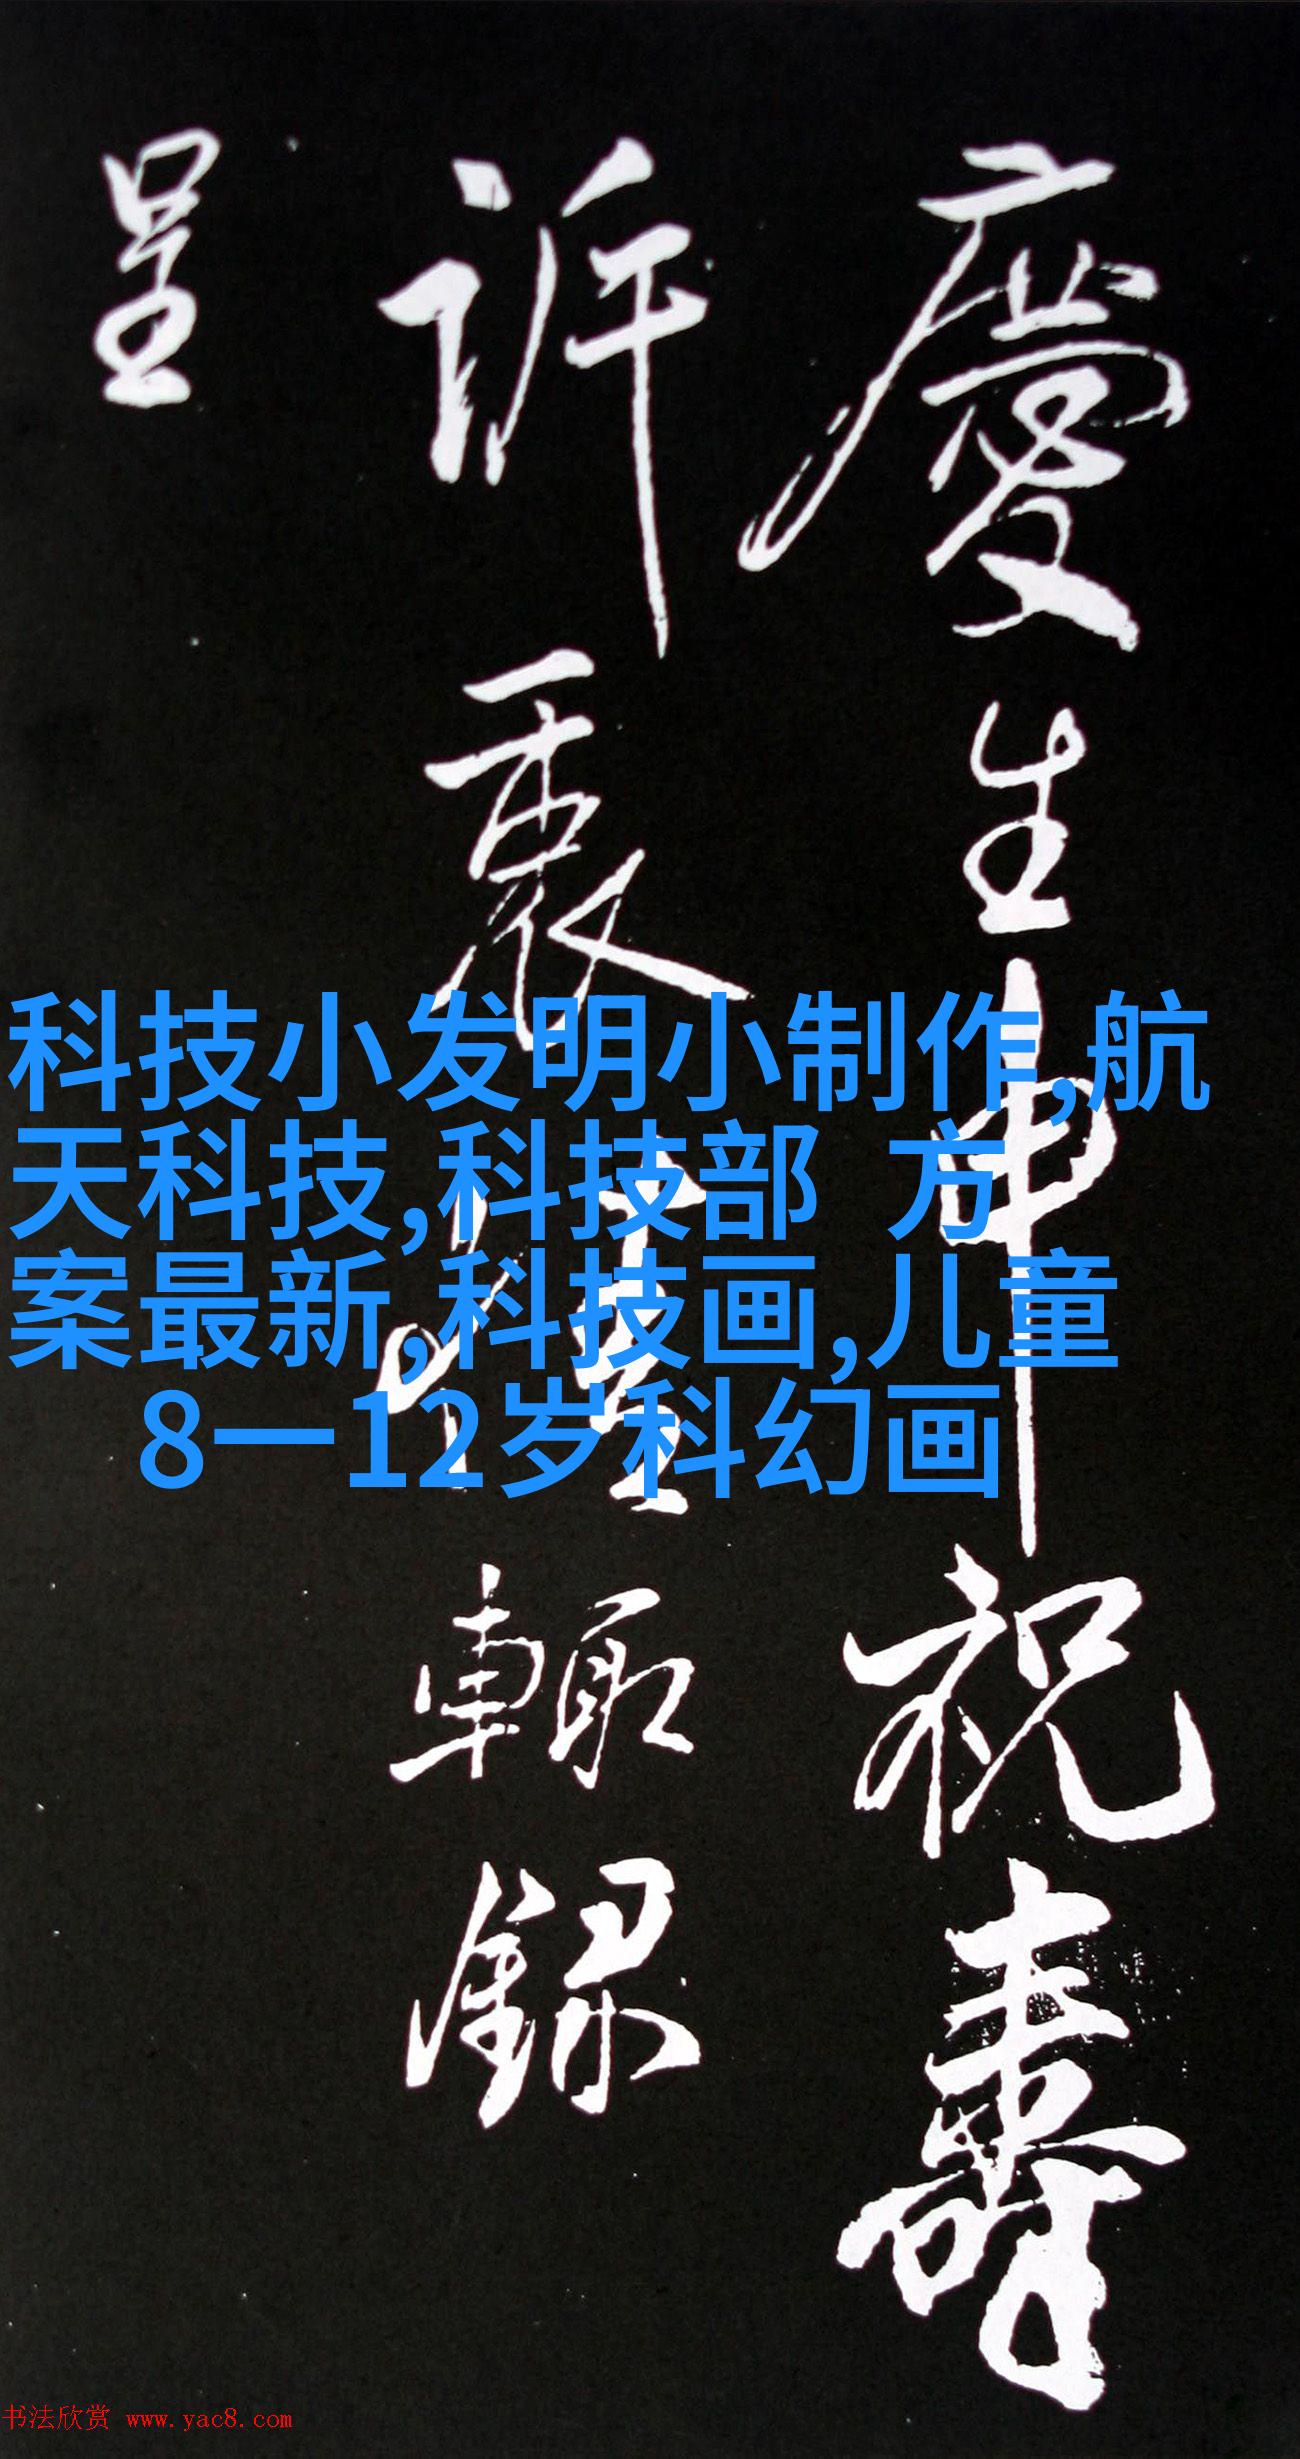 慶生申祝壽
訴衷情輒録
呈
科技小发明小制作,航
天科技,科技部 方
案最新,科技画,儿童
8一12岁科幻画
书法欣赏 www.yac8.com